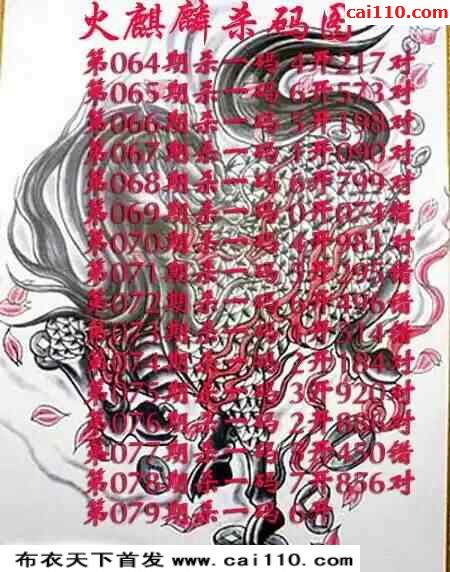 cai110.com
火麒麟杀码图
第064期杀一码 4开217对
第065期杀一码 6开573对
第066期杀一码 5开198对
第067期杀一码 开090对
第068期杀一码 6开799对
第069期杀一码 0开074错
第070期杀一码 4开981对
第071期杀一码 开395错
第072期杀一码 6开496错
第073期杀一码 开514
第074期杀一码 2开184对
第075期杀一码 3开920对
第076期杀一码 2开 对
第077期杀一码 开450错
第078期杀一码 7开856对
第079期杀一码 6开
布衣天下首发 www.cai110.com